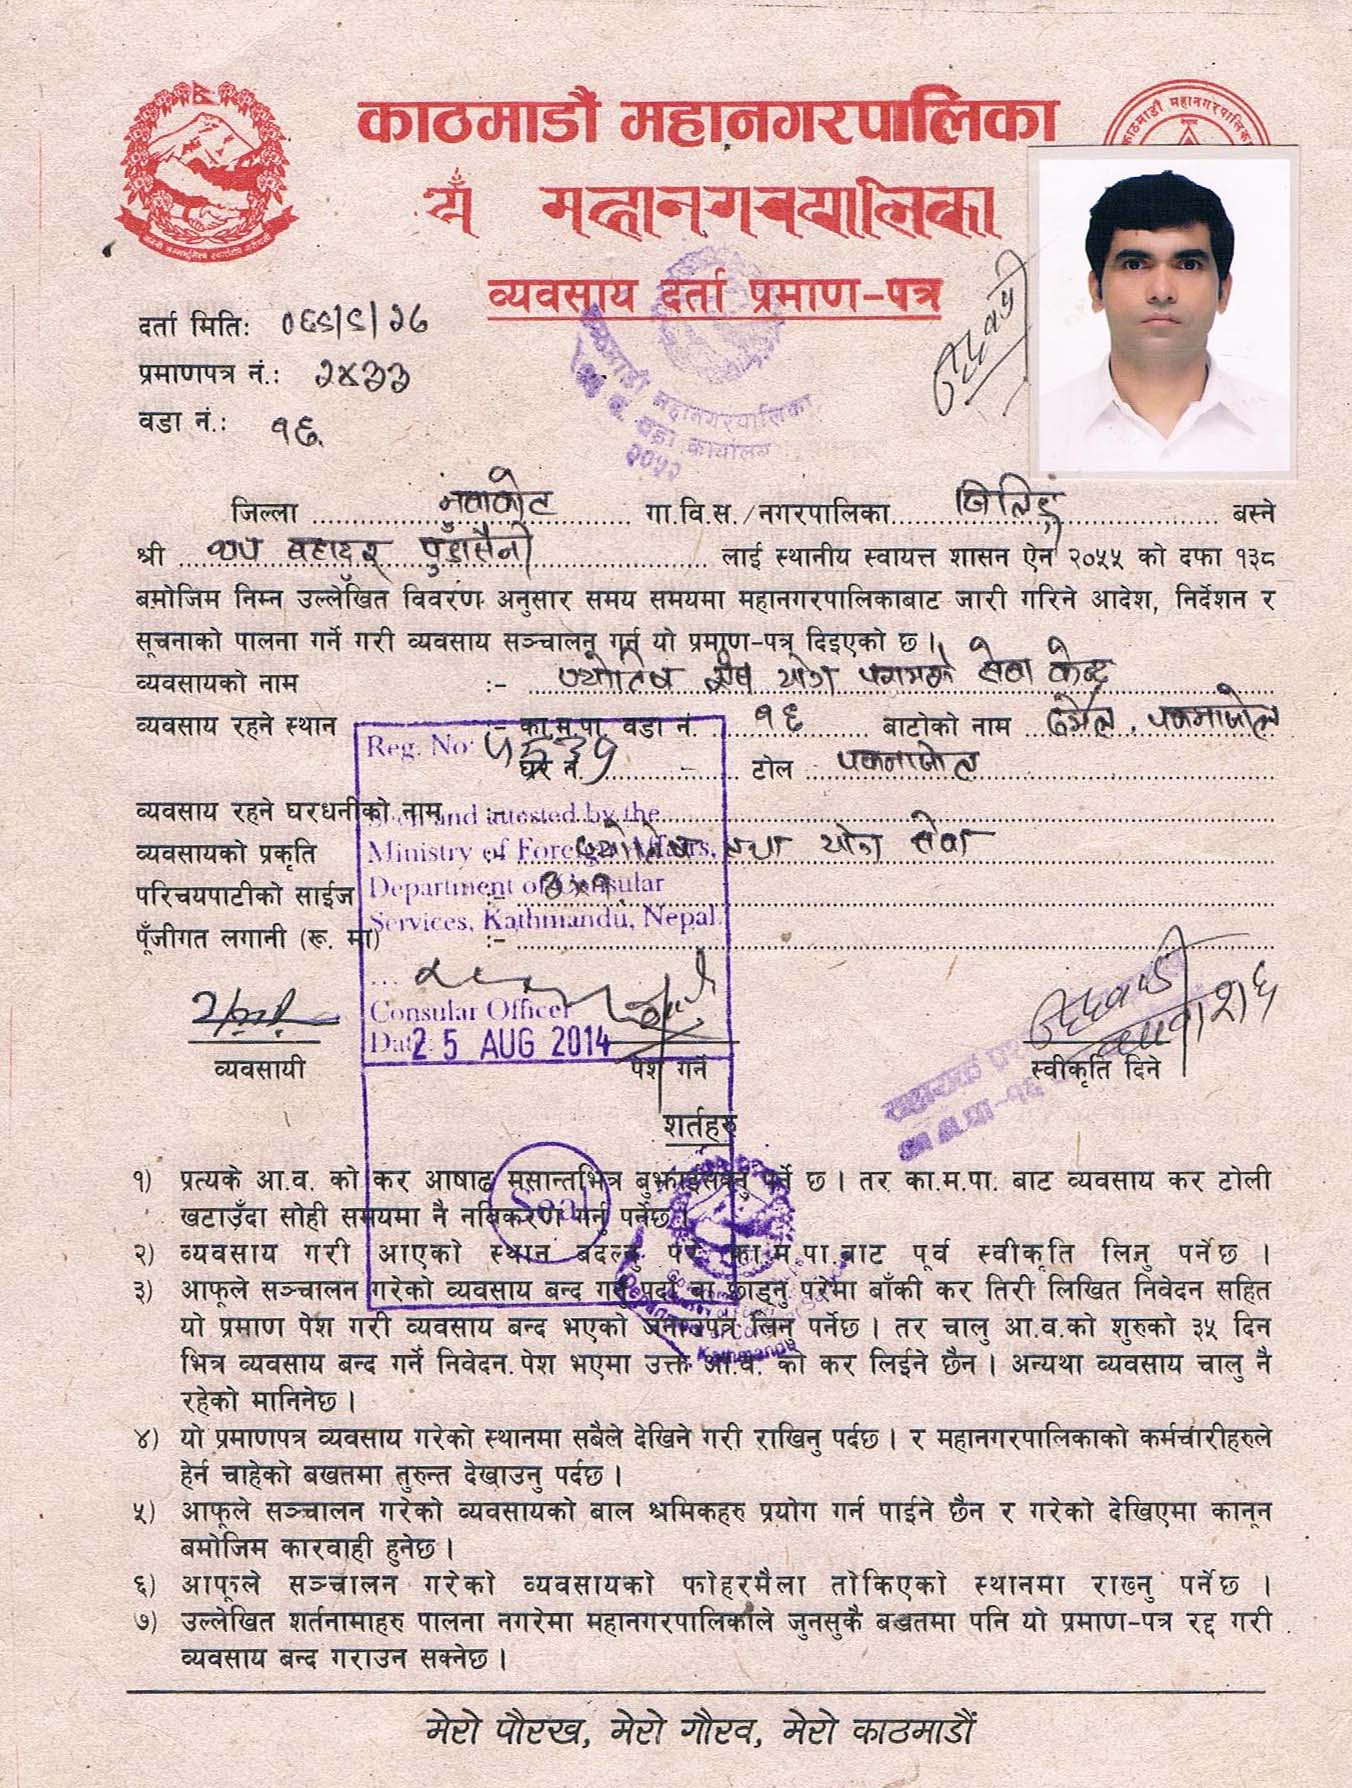 काठमाडौं महानगरपालिका
व्यवसाय दर्ता प्रमाण-पत्र
दर्ता मितिः ०६८/८/२८
प्रमाणपत्र नं.: २४३३
वडा नं.: १६
काठमाडौं महानगरपालिका
१६ नं. वडा कार्यालय
२०५२
जिल्ला नुवाकोट गा.वि.स./नगरपालिका जिलिङ्ग बस्ने
श्री थाप बहादुर पुडासैनी लाई स्थानीय स्वायत्त शासन ऐन २०५५ को दफा १३८
बमोजिम निम्न उल्लेखित विवरण अनुसार समय समयमा महानगरपालिकाबाट जारी गरिने आदेश, निर्देशन र
सूचनाको पालना गर्ने गरी व्यवसाय सञ्चालन गर्न यो प्रमाण-पत्र दिइएको छ ।
व्यवसायको नाम :- ज्योतिष योग परामर्श सेवा केन्द्र
व्यवसाय रहने स्थान :- का.म.पा. वडा नं. १६ बाटोको नाम ठमेल, पकनाजोल
घर नं. - टोल पकनाजोल
व्यवसाय रहने घरधनीको नाम :-
व्यवसायको प्रकृति :- ज्योतिष तथा योग सेवा
परिचयपाटीको साईज :- ३x१
पूँजीगत लगानी (रू. मा) :-
Reg. No:
Seen and attested by the
Ministry of Foreign Affairs,
Department of Consular
Services, Kathmandu, Nepal.
Consular Officer
Date: 25 AUG 2014
व्यवसायी पेश गर्ने स्वीकृति दिने
शर्तहरु
Seal
१) प्रत्यके आ.व. को कर आषाढ मसान्तभित्र बुझाईसक्नु पर्ने छ । तर का.म.पा. बाट व्यवसाय कर टोली
खटाउँदा सोही समयमा नै नविकरण गर्नु पर्नेछ ।
२) व्यवसाय गरी आएको स्थान बदल्नु परे का.म.पा.बाट पूर्व स्वीकृति लिनु पर्नेछ ।
३) आफूले सञ्चालन गरेको व्यवसाय बन्द गर्नु पर्दा वा छाड्नु परेमा बाँकी कर तिरी लिखित निवेदन सहित
यो प्रमाण पेश गरी व्यवसाय बन्द भएको जनाउपत्र लिनु पर्नेछ । तर चालु आ.व.को शुरुको ३५ दिन
भित्र व्यवसाय बन्द गर्ने निवेदन पेश भएमा उक्त आ.व. को कर लिईने छैन । अन्यथा व्यवसाय चालु नै
रहेको मानिनेछ ।
४) यो प्रमाणपत्र व्यवसाय गरेको स्थानमा सबैले देखिने गरी राखिनु पर्दछ । र महानगरपालिकाको कर्मचारीहरुले
हेर्न चाहेको बखतमा तुरुन्त देखाउनु पर्दछ ।
५) आफूले सञ्चालन गरेको व्यवसायको बाल श्रमिकहरु प्रयोग गर्न पाईने छैन र गरेको देखिएमा कानून
बमोजिम कारवाही हुनेछ ।
६) आफूले सञ्चालन गरेको व्यवसायको फोहरमैला तोकिएको स्थानमा राख्नु पर्नेछ ।
७) उल्लेखित शर्तनामाहरु पालना नगरेमा महानगरपालिकाले जुनसुकै बखतमा पनि यो प्रमाण-पत्र रद्द गरी
व्यवसाय बन्द गराउन सक्नेछ ।
मेरो पौरख, मेरो गौरव, मेरो काठमाडौं